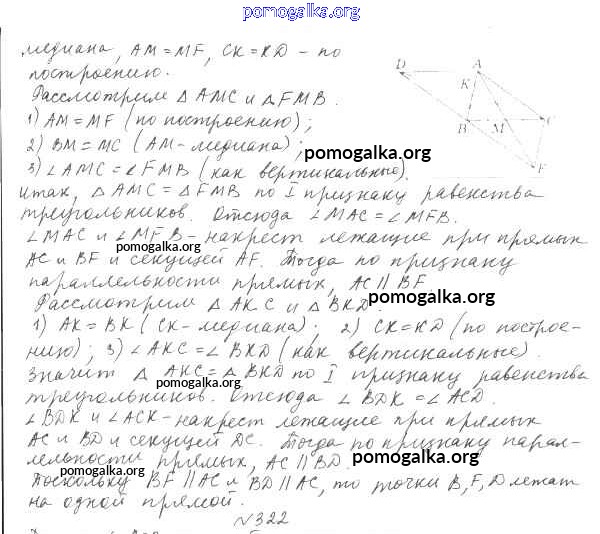 pomogalka.org
медиана, AM=MF, CK=KD - по
построению.
Рассмотрим △ AMC и △ FMB.
1) AM=MF (по построению);
2) BM=MC (AM-медиана);
pomogalka.org
3) ∠AMC=∠FMB (как вертикальные).
Итак, △ AMC = △ FMB по I признаку равенства
треугольников. Отсюда ∠MAC=∠MFB.
∠MAC и ∠MFB-накрест лежащие при прямых
pomogalka.org
AC и BF и секущей AF. Тогда по признаку
параллельности прямых, AC || BF.
pomogalka.org
Рассмотрим △ AKC и △ BKD.
1) AK=BK (CK-медиана); 2) CK=KD (по построе-
нию); 3) ∠AKC=∠BKD (как вертикальные).
Значит △ AKC=△ BKD по I признаку равенства
pomogalka.org
треугольников. Отсюда ∠BDK=∠ACD.
∠BDK и ∠ACK-накрест лежащие при прямых
AC и BD и секущей DC. Тогда по признаку парал-
лельности прямых, AC || BD.
pomogalka.org
pomogalka.org
Поскольку BF || AC и BD || AC, то точки B, F, D лежат
на одной прямой.
N322
D
A
K
B
M
C
F